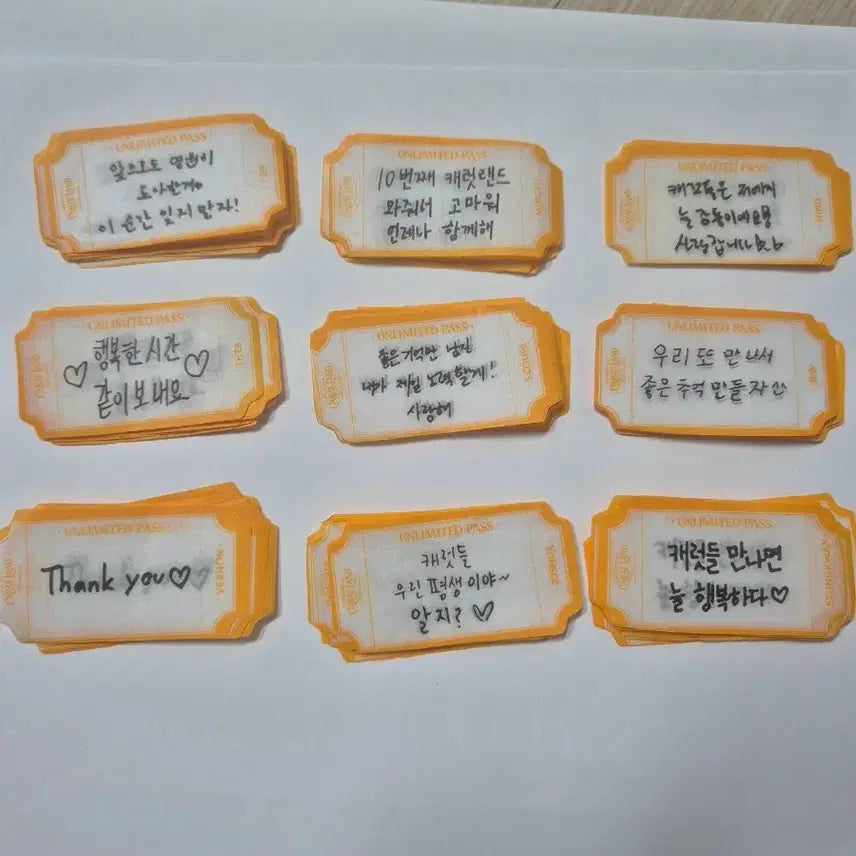 UNLIMITED PASS
앞으로도 영원히
도아반게
이 순간 잊지 말자!
UNLIMITED PASS
10번째 캐럿랜드
와줘서 고마워
언제나 함께해
UNLIMITED PASS
캐럿들은 저에게
늘 감동이에요용
사랑합니다
UNLIMITED PASS
행복한 시간
같이 보내요
UNLIMITED PASS
좋은 기억만 남길
내가 제일 노력할게!
사랑해
S.COUPS
UNLIMITED PASS
우리 또 만나서
좋은 추억 만들자
UNLIMITED PASS
Thank you
VERNON
UNLIMITED PASS
캐럿들
우린 평생이야~
알지?
JOSHUA
UNLIMITED PASS
캐럿들 만나면
늘 행복하다